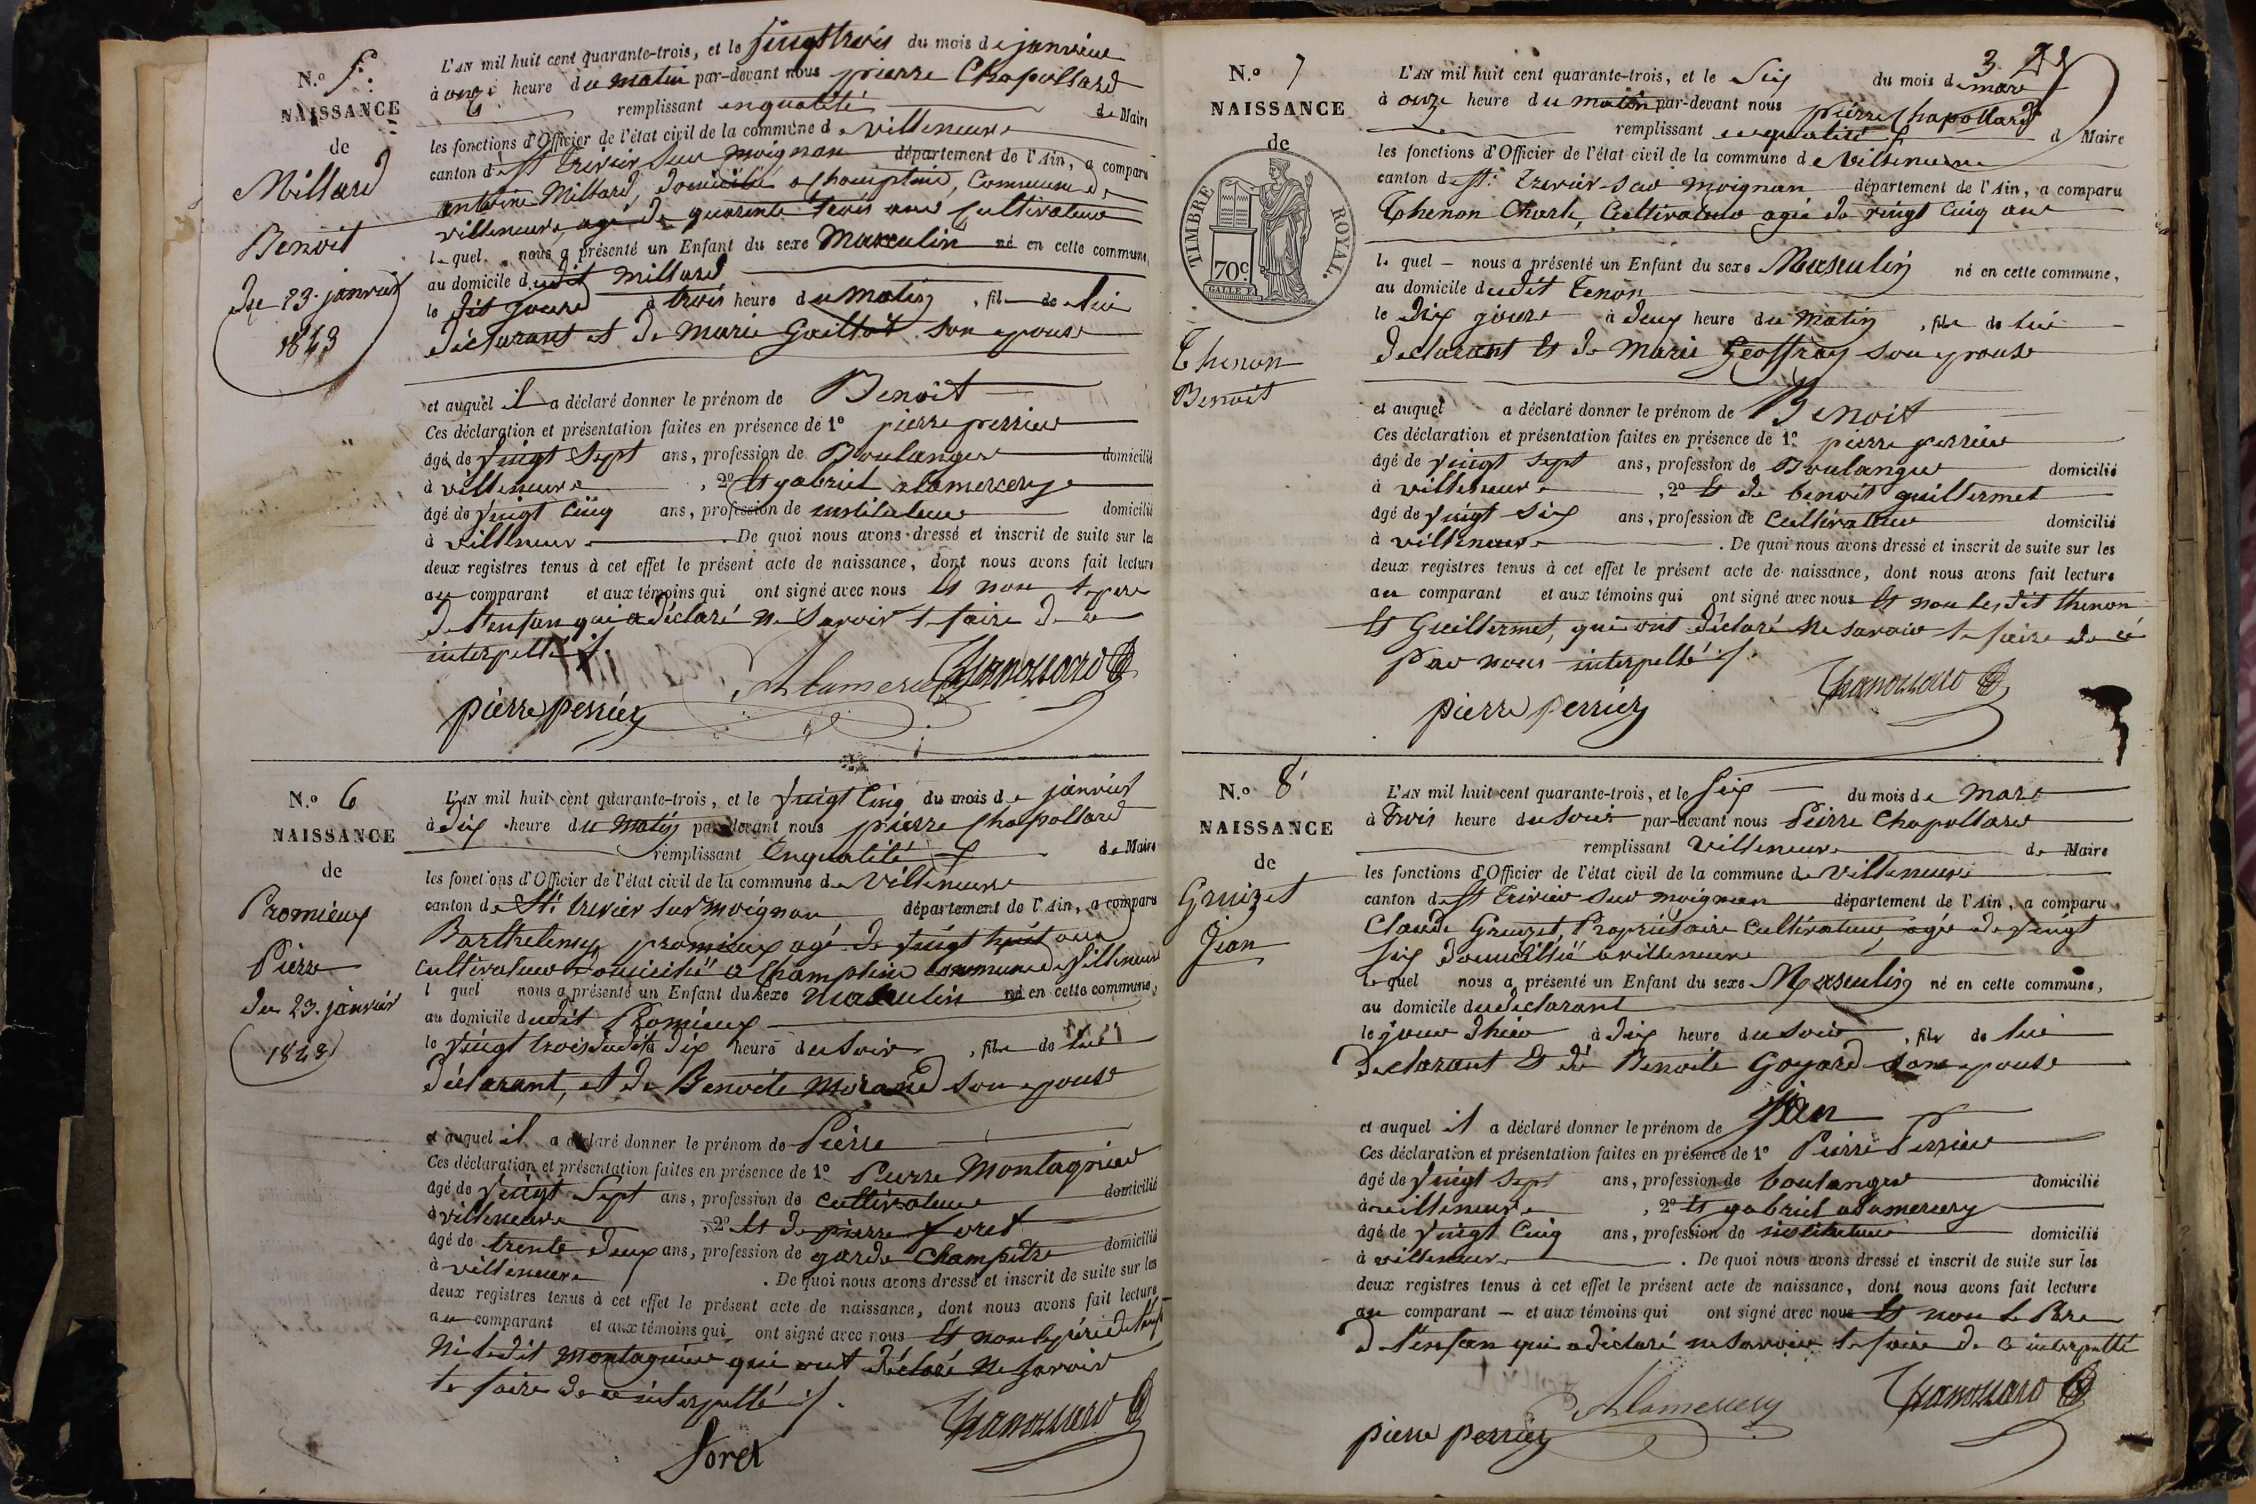 N.o 5.
NAISSANCE
de
Millard
Benoit
du 23. janvier
1843
L'AN mil huit cent quarante-trois, et le vingt trois du mois de janvier
à onze heure du matin par-devant nous pierre Chapollard
remplissant enqualité de Maire
les fonctions d'Officier de l'état civil de la commune de villeneuve
canton de St trivier sur moignan département de l'Ain, a comparu
antoine Millard, domicilié a Champtein, Commune de
villeneuve, agé de quarente trois ans Cultivateur
lequel nous a présenté un Enfant du sexe Masculin né en cette commune,
au domicile dudit Millard
le dit jour à trois heure du matin, fils de lui
déclarant et de marie Gaillot son epouse
et auquel il a déclaré donner le prénom de Benoit
Ces déclaration et présentation faites en présence de 1o pierre perrier
âgé de vingt sept ans, profession de Boulanger domicilié
à villeneuve, 2o Et gabriel alamercery
âgé de vingt cinq ans, profession de instituteur domicilié
à villeneuve. De quoi nous avons dressé et inscrit de suite sur les
deux registres tenus à cet effet le présent acte de naissance, dont nous avons fait lecture
au comparant et aux témoins qui ont signé avec nous Et non le pere
de l'enfan qui a déclaré ne savoir le faire de ce
interpellé ./.
Alamercery Chapollard
pierre perrier
N.o 6
NAISSANCE
de
Promieux
Pierre
du 23. janvier
1843
L'AN mil huit cent quarante-trois, et le vingt Cinq du mois de janvier
à dix heure du matin par-devant nous pierre Chapollard
remplissant Enqualité de Maire
les fonctions d'Officier de l'état civil de la commune de Villeneuve
canton de St. trivier sur moignan département de l'Ain, a comparu
Barthelemy promieux agé de vingt huit ans
cultivateur domicilié a Champtein commune de villeneuve
l quel nous a présenté un Enfant du sexe masculin né en cette commune,
au domicile dudit Promieux
le vingt trois dudit à dix heure du soir, fils de lui
déclarant, et de Benoite Morand son epouse
et auquel il a déclaré donner le prénom de Pierre
Ces déclaration et présentation faites en présence de 1o Pierre Montagnier
âgé de vingt Sept ans, profession de cultivateur domicilié
à villeneuve, 2o Et de pierre foret
âgé de trente deux ans, profession de garde Champetre domicilié
à villeneuve. De quoi nous avons dressé et inscrit de suite sur les
deux registres tenus à cet effet le présent acte de naissance, dont nous avons fait lecture
au comparant et aux témoins qui ont signé avec nous Et non le pére de
Ni ledit Montagnier qui ont déclaré Ne savoir
le faire de ce interpellé ./.
foret Chapollard
3 2
N.o 7
NAISSANCE
de
TIMBRE ROYAL.
70c
Thenon
Benoit
L'AN mil huit cent quarante-trois, et le Six du mois de mars
à onze heure du matin par-devant nous pierre Chapollard
remplissant enqualité d Maire
les fonctions d'Officier de l'état civil de la commune de villeneuve
canton de St. trivier sur moignan département de l'Ain, a comparu
Thenon Charle, Cultivateur agé de vingt cinq ans
le quel nous a présenté un Enfant du sexe Masculin né en cette commune,
au domicile dudit Tenon
le dix jour à deux heure du matin, fils de lui
declarant Et de Marie Geoffray son epouse
et auquel a déclaré donner le prénom de Benoit
Ces déclaration et présentation faites en présence de 1o pierre perrier
âgé de vingt sept ans, profession de Boulanger domicilié
à villeneuve, 2o Et de benoit guillermet
âgé de vingt six ans, profession de cultivateur domicilié
à villeneuve. De quoi nous avons dressé et inscrit de suite sur les
deux registres tenus à cet effet le présent acte de naissance, dont nous avons fait lecture
au comparant et aux témoins qui ont signé avec nous Et non lesdit thenon
Et Guillermet, qui ont déclaré Ne savoir le faire de cé
par nous interpellé ./.
Chapollard
pierre perrier
N.o 8
NAISSANCE
de
Gruizet
Jean
L'AN mil huit cent quarante-trois, et le six du mois de mars
à trois heure du soir par-devant nous Pierre Chapollard
remplissant villeneuve de Maire
les fonctions d'Officier de l'état civil de la commune de villeneuve
canton de St trivier sur moignan département de l'Ain, a comparu
Claude Gruizet, Propriétaire Cultivateur agé de vingt
six domicillié a villeneuve
lequel nous a présenté un Enfant du sexe Masculin né en cette commune,
au domicile du declarant
le jour dhier à dix heure du soir, fils de lui
declarant Et dé Benoite Goyard son epouse
et auquel il a déclaré donner le prénom de Jean
Ces déclaration et présentation faites en présence de 1o Pierre Perrier
âgé de vingt sept ans, profession de boulanger domicilié
à villeneuve, 2o Et gabriel alamercery
âgé de vingt Cinq ans, profession de instituteur domicilié
à villeneuve. De quoi nous avons dressé et inscrit de suite sur les
deux registres tenus à cet effet le présent acte de naissance, dont nous avons fait lecture
au comparant et aux témoins qui ont signé avec nous Et non le Pere
de l'enfan qui a déclaré ne savoir le faire de ce interpellé
Alamercery Chapollard
pierre perrier